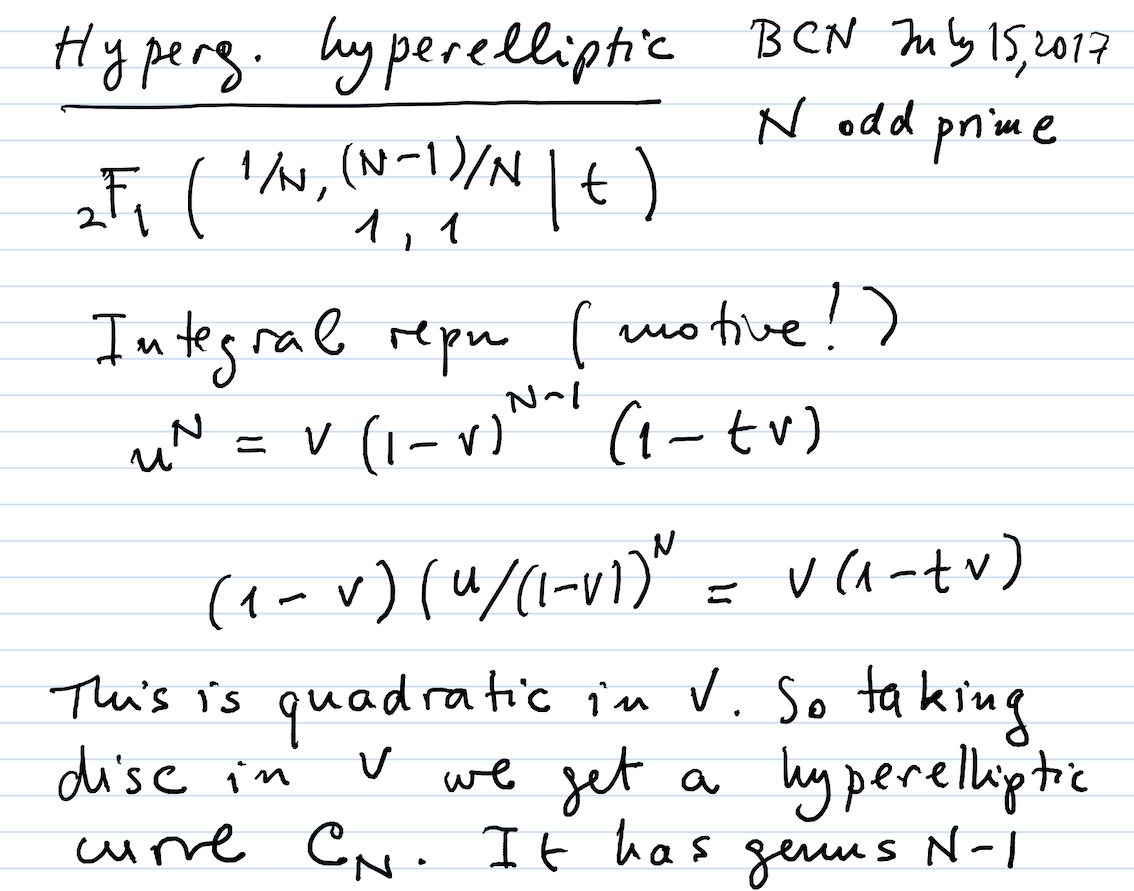 Hyperg. hyperelliptic BCN July 15, 2017
N odd prime
₂F₁ ( 1/N, (N-1)/N | t )
1, 1
Integral repn (motive!)
u^N = v (1-v)^{N-1} (1-tv)
(1-v)(u/(1-v))^N = v(1-tv)
This is quadratic in v. So taking
disc in v we get a hyperelliptic
curve C_N. It has genus N-1